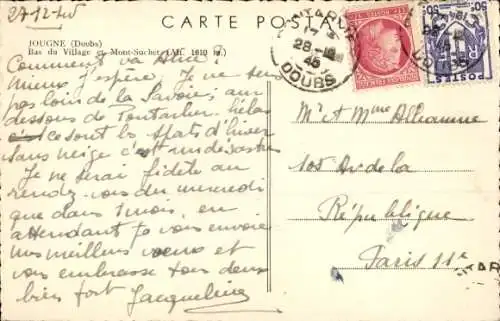 27-12-45
CARTE POSTALE
JOUGNE (Doubs)
Bas du Village et Mont-Suchet (Alt. 1610 m.)
Comment va Alice?
Mieux j'espère. Je ne suis
pas loin de la Savoie, au
dessous de Pontarlier. hélas
ce sont les sports d'hiver
sans neige c'est un désastre
Je ne serai fidèle au
rendez-vous du mercredi
que dans 1 mois, en
attendant je vous envoie
mes meilleurs vœux et
vous embrasse tous deux
bien fort Jacqueline
17
28-12
45
DOUBS
POSTES
50
Mr et Mme
105 Av de la
République
Paris 11e